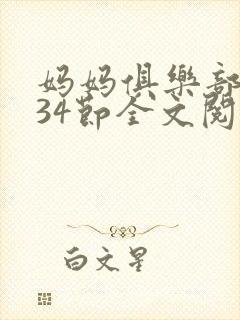 妈妈俱樂部
34節全文閱
白文星